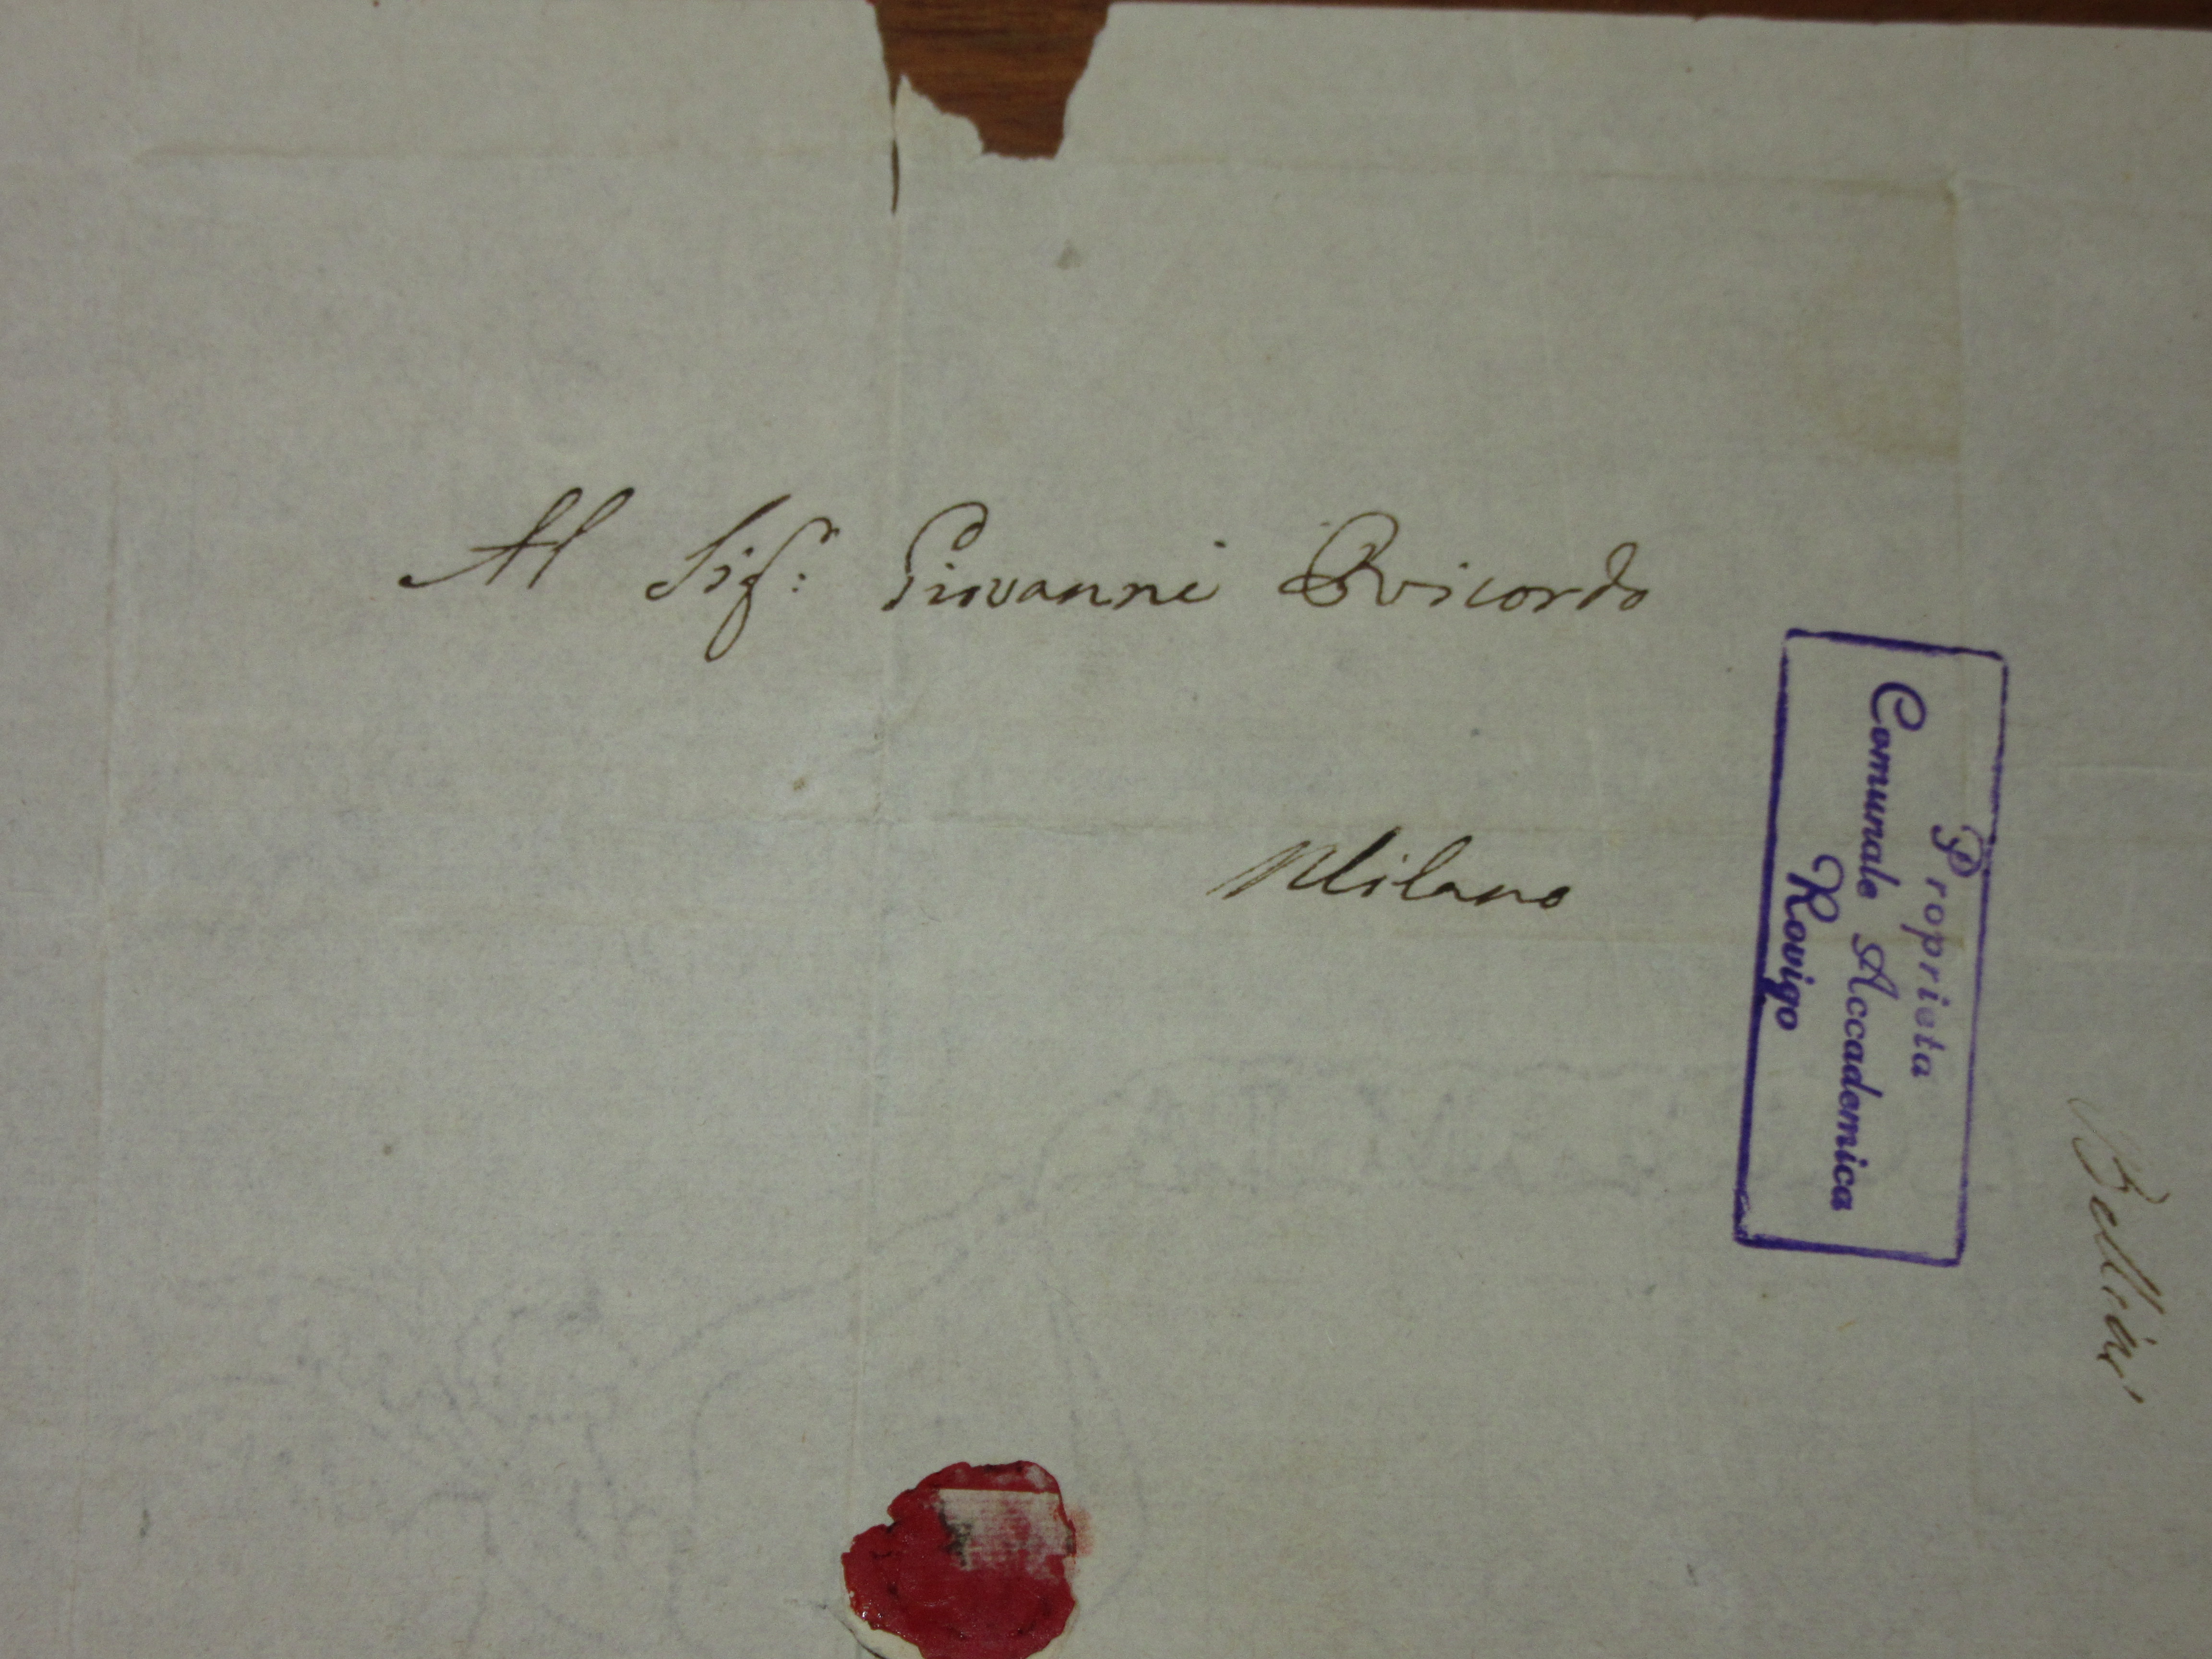 Al Sigr: Giovanni Ricordo
Milano
Proprieta
Comunale Accademica
Rovigo
Bellini